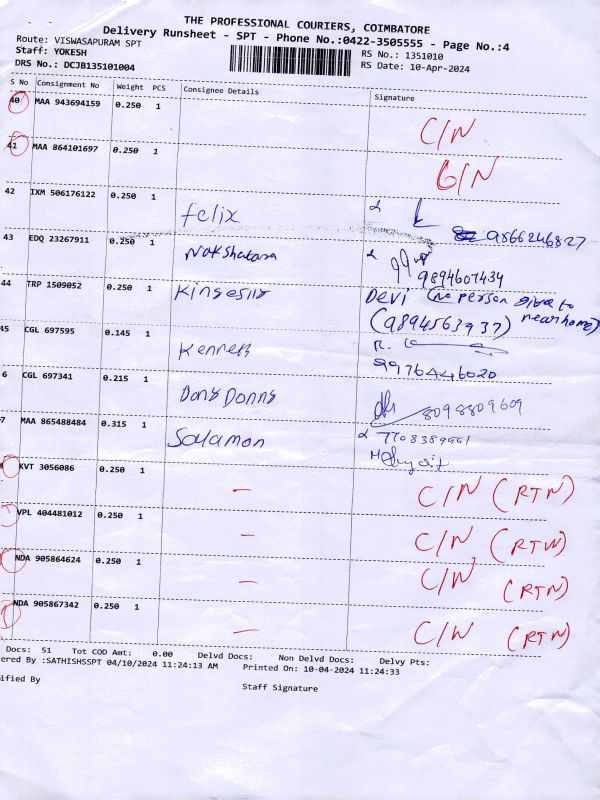 THE PROFESSIONAL COURIERS, COIMBATORE
Delivery Runsheet - SPT - Phone No.:0422-3505555 - Page No.:4
Route: VISWASAPURAM SPT
RS No.: 1351010
Staff: YOKESH
RS Date: 10-Apr-2024
DRS No.: DCJB135101004
S No Consignment No Weight PCS Consignee Details Signature
40 MAA 943694159 0.250 1 C/N
41 MAA 864101697 0.250 1 C/N
42 IXM 506176122 0.250 1 felix
9866246827
43 EDQ 23267911 0.250 1 Nakshatara
9894607434
44 TRP 1509052 0.250 1 Devi (no person give to near home)
(9894563937)
45 CGL 697595 0.145 1 Kenneth R.
9976446020
6 CGL 697341 0.215 1 Dony Donny 8098809609
7 MAA 865488484 0.315 1 Salamon
KVT 3056086 0.250 1 — C/N (RTN)
VPL 404481012 0.250 1 — C/N (RTN)
NDA 905864624 0.250 1 — C/N (RTN)
NDA 905867342 0.250 1 — C/N (RTN)
Docs: 51 Tot COD Amt: 0.00 Delvd Docs: Non Delvd Docs: Delvy Pts:
ered By :SATHISHSSPT 04/10/2024 11:24:13 AM Printed On: 10-04-2024 11:24:33
ified By Staff Signature